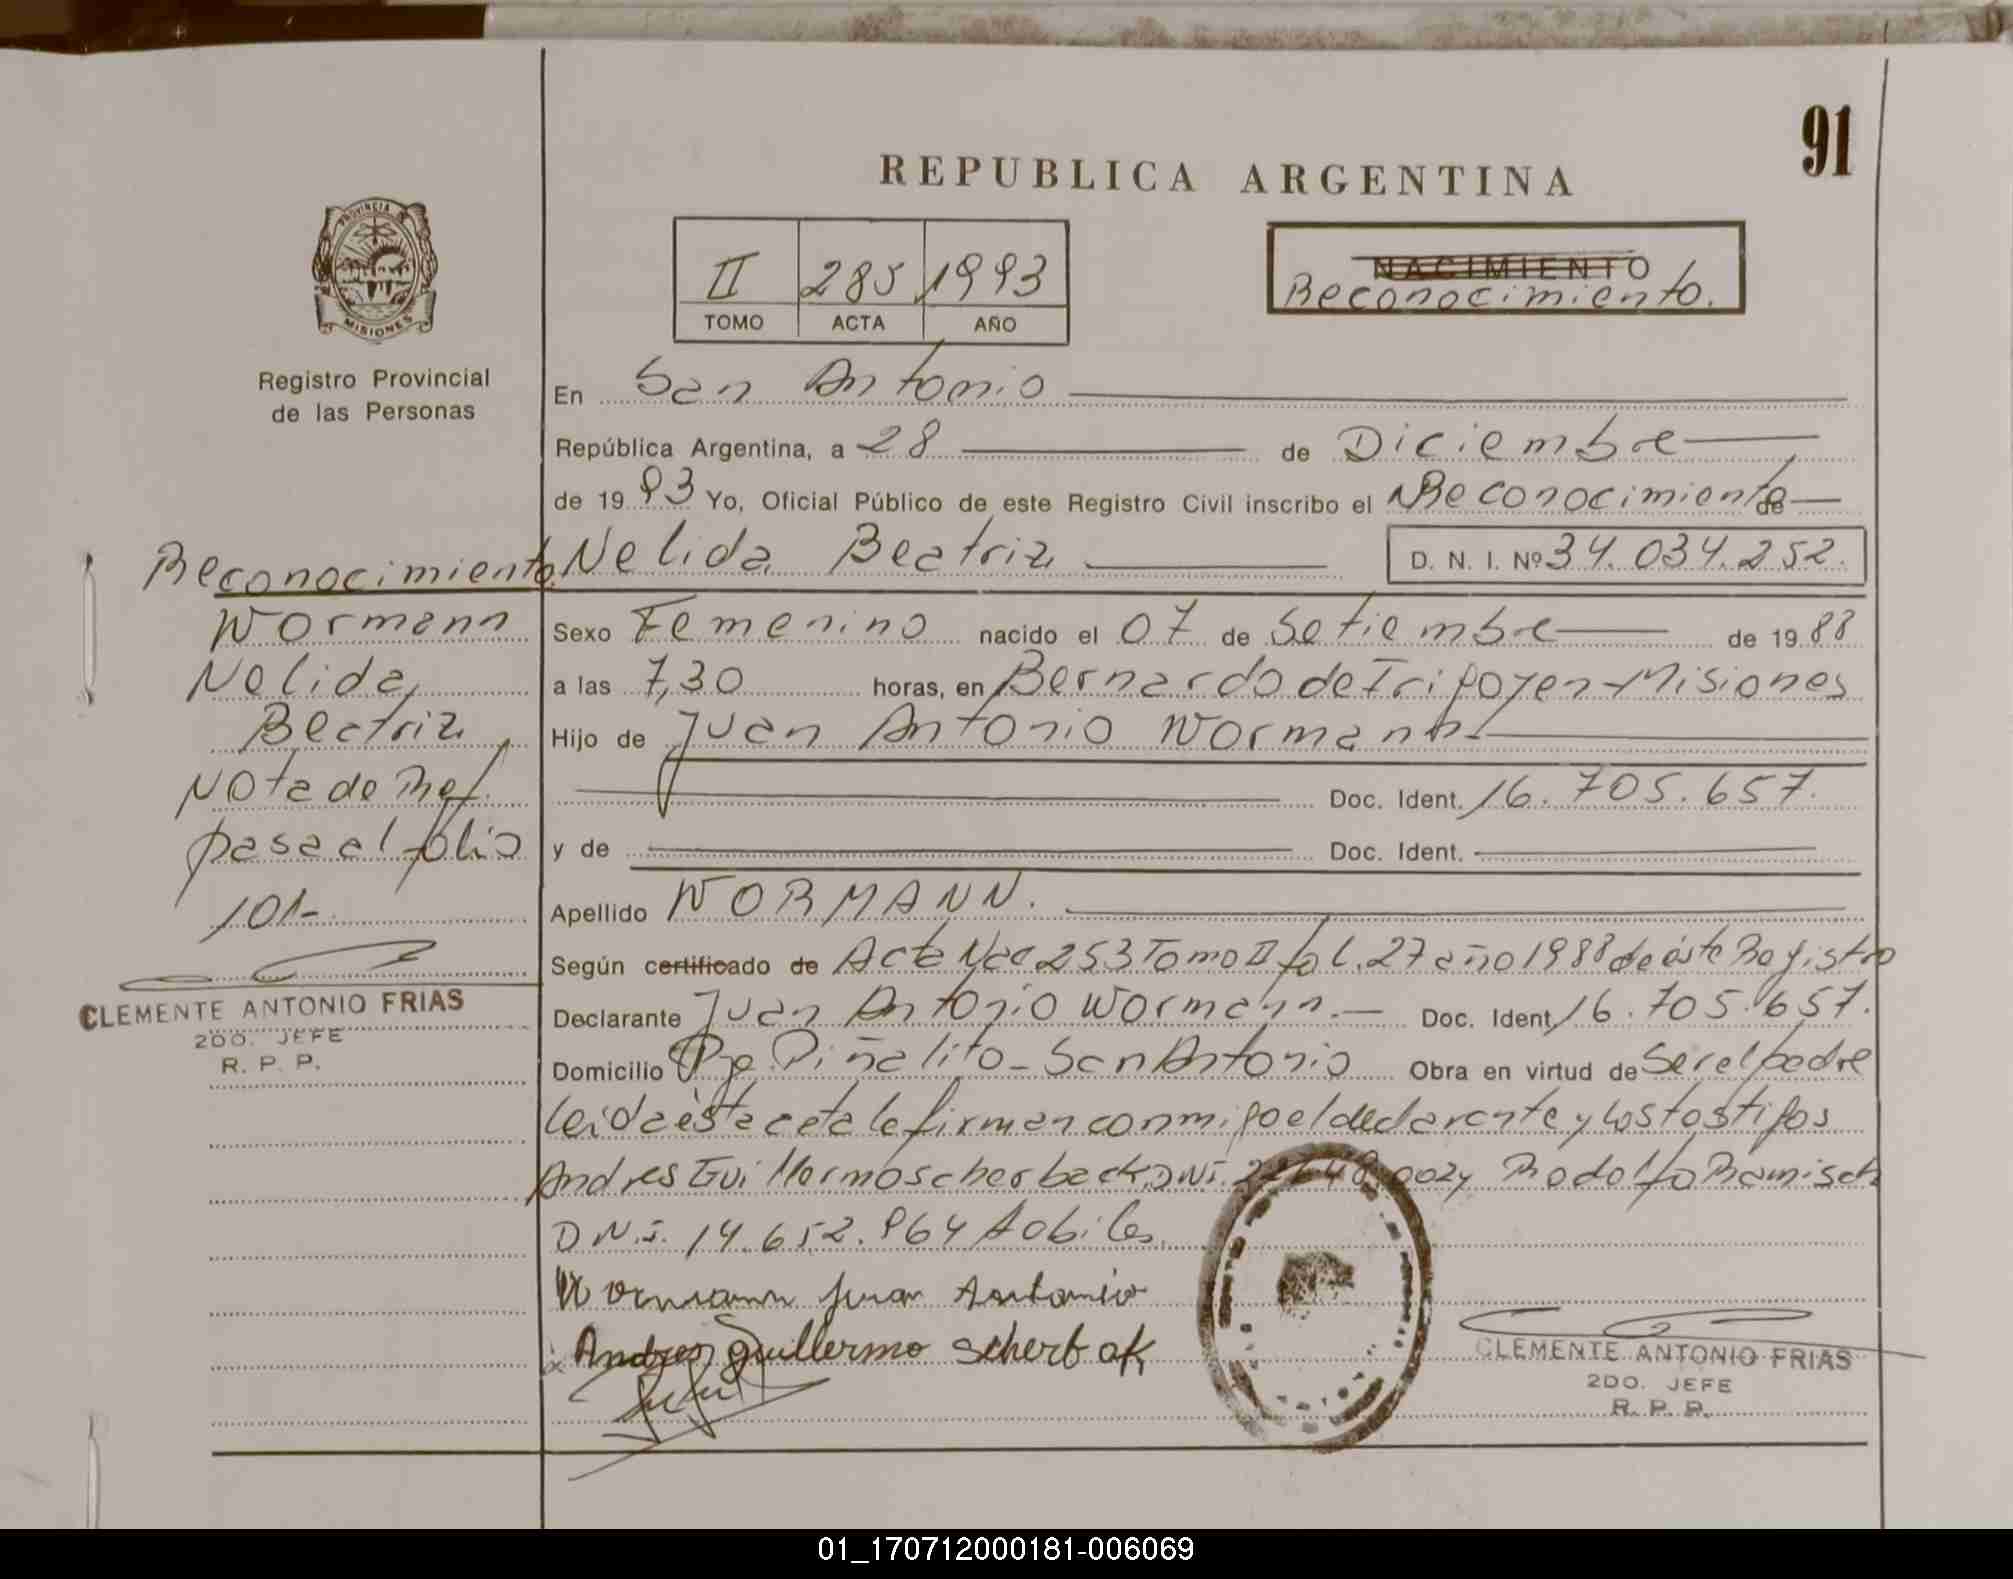 91
REPUBLICA ARGENTINA
PROVINCIA DE
MISIONES
Registro Provincial
de las Personas
II 285 1993
TOMO ACTA AÑO
NACIMIENTO
Reconocimiento.
En San Antonio
República Argentina, a 28 de Diciembre
de 1993 Yo, Oficial Público de este Registro Civil inscribo el Reconocimiento de
Nelida Beatriz D. N. I. Nº 34.034.252.
Sexo Femenino nacido el 07 de Setiembre de 1988
a las 7,30 horas, en Bernardo de Irigoyen-Misiones
Hijo de Juan Antonio Wormann
Doc. Ident. 16.705.657.
y de Doc. Ident.
Apellido WORMANN.
Según certificado de Acta Nac 253 Tomo II fol. 27 año 1988 de éste Registro
Declarante Juan Antonio Wormann.- Doc. Ident. 16.705.657.
Domicilio Pje Piñalito-San Antonio Obra en virtud de Ser el padre
leida ésta acta la firman conmigo el declarante y los testigos
Andres Guillermo Scherback DNI. 002 y Rodolfo Ramisch
D.N.I. 14.652.964 Hobiles.
Wormann Juan Antonio
Andres Guillermo Scherbak
CLEMENTE ANTONIO FRIAS
2DO. JEFE
R. P. P.
Reconocimiento
Wormann
Nelida
Beatriz
Nota de Ref.
pasa al folio
101-
CLEMENTE ANTONIO FRIAS
2DO. JEFE
R. P. P.
01_170712000181-006069